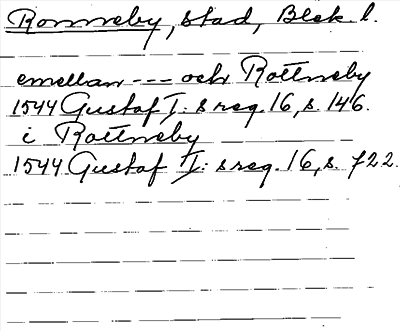 Ronneby, stad, Blek. l.
emellan --- och Rottneby
1544 Gustaf I: s reg. 16, s. 146.
i Rottneby
1544 Gustaf I: s reg. 16, s. 722.